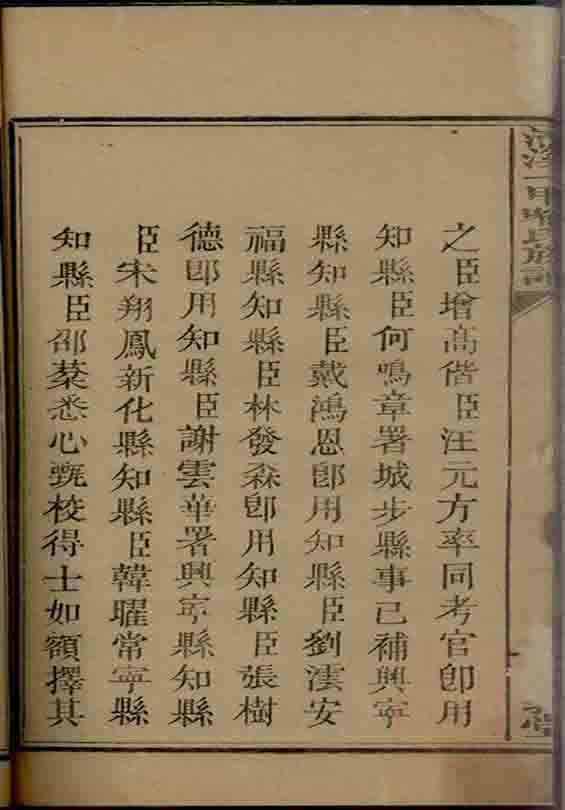 之臣增高偕臣汪元方率同考官卽用
知縣臣何鳴章署城步縣事已補興寧
縣知縣臣戴鴻恩卽用知縣臣劉澐安
福縣知縣臣林發森卽用知縣臣張樹
德卽用知縣臣謝雲華署興寧縣知縣
臣宋翔鳳新化縣知縣臣韓曜常寧縣
知縣臣邵棻悉心甄校得士如額擇其